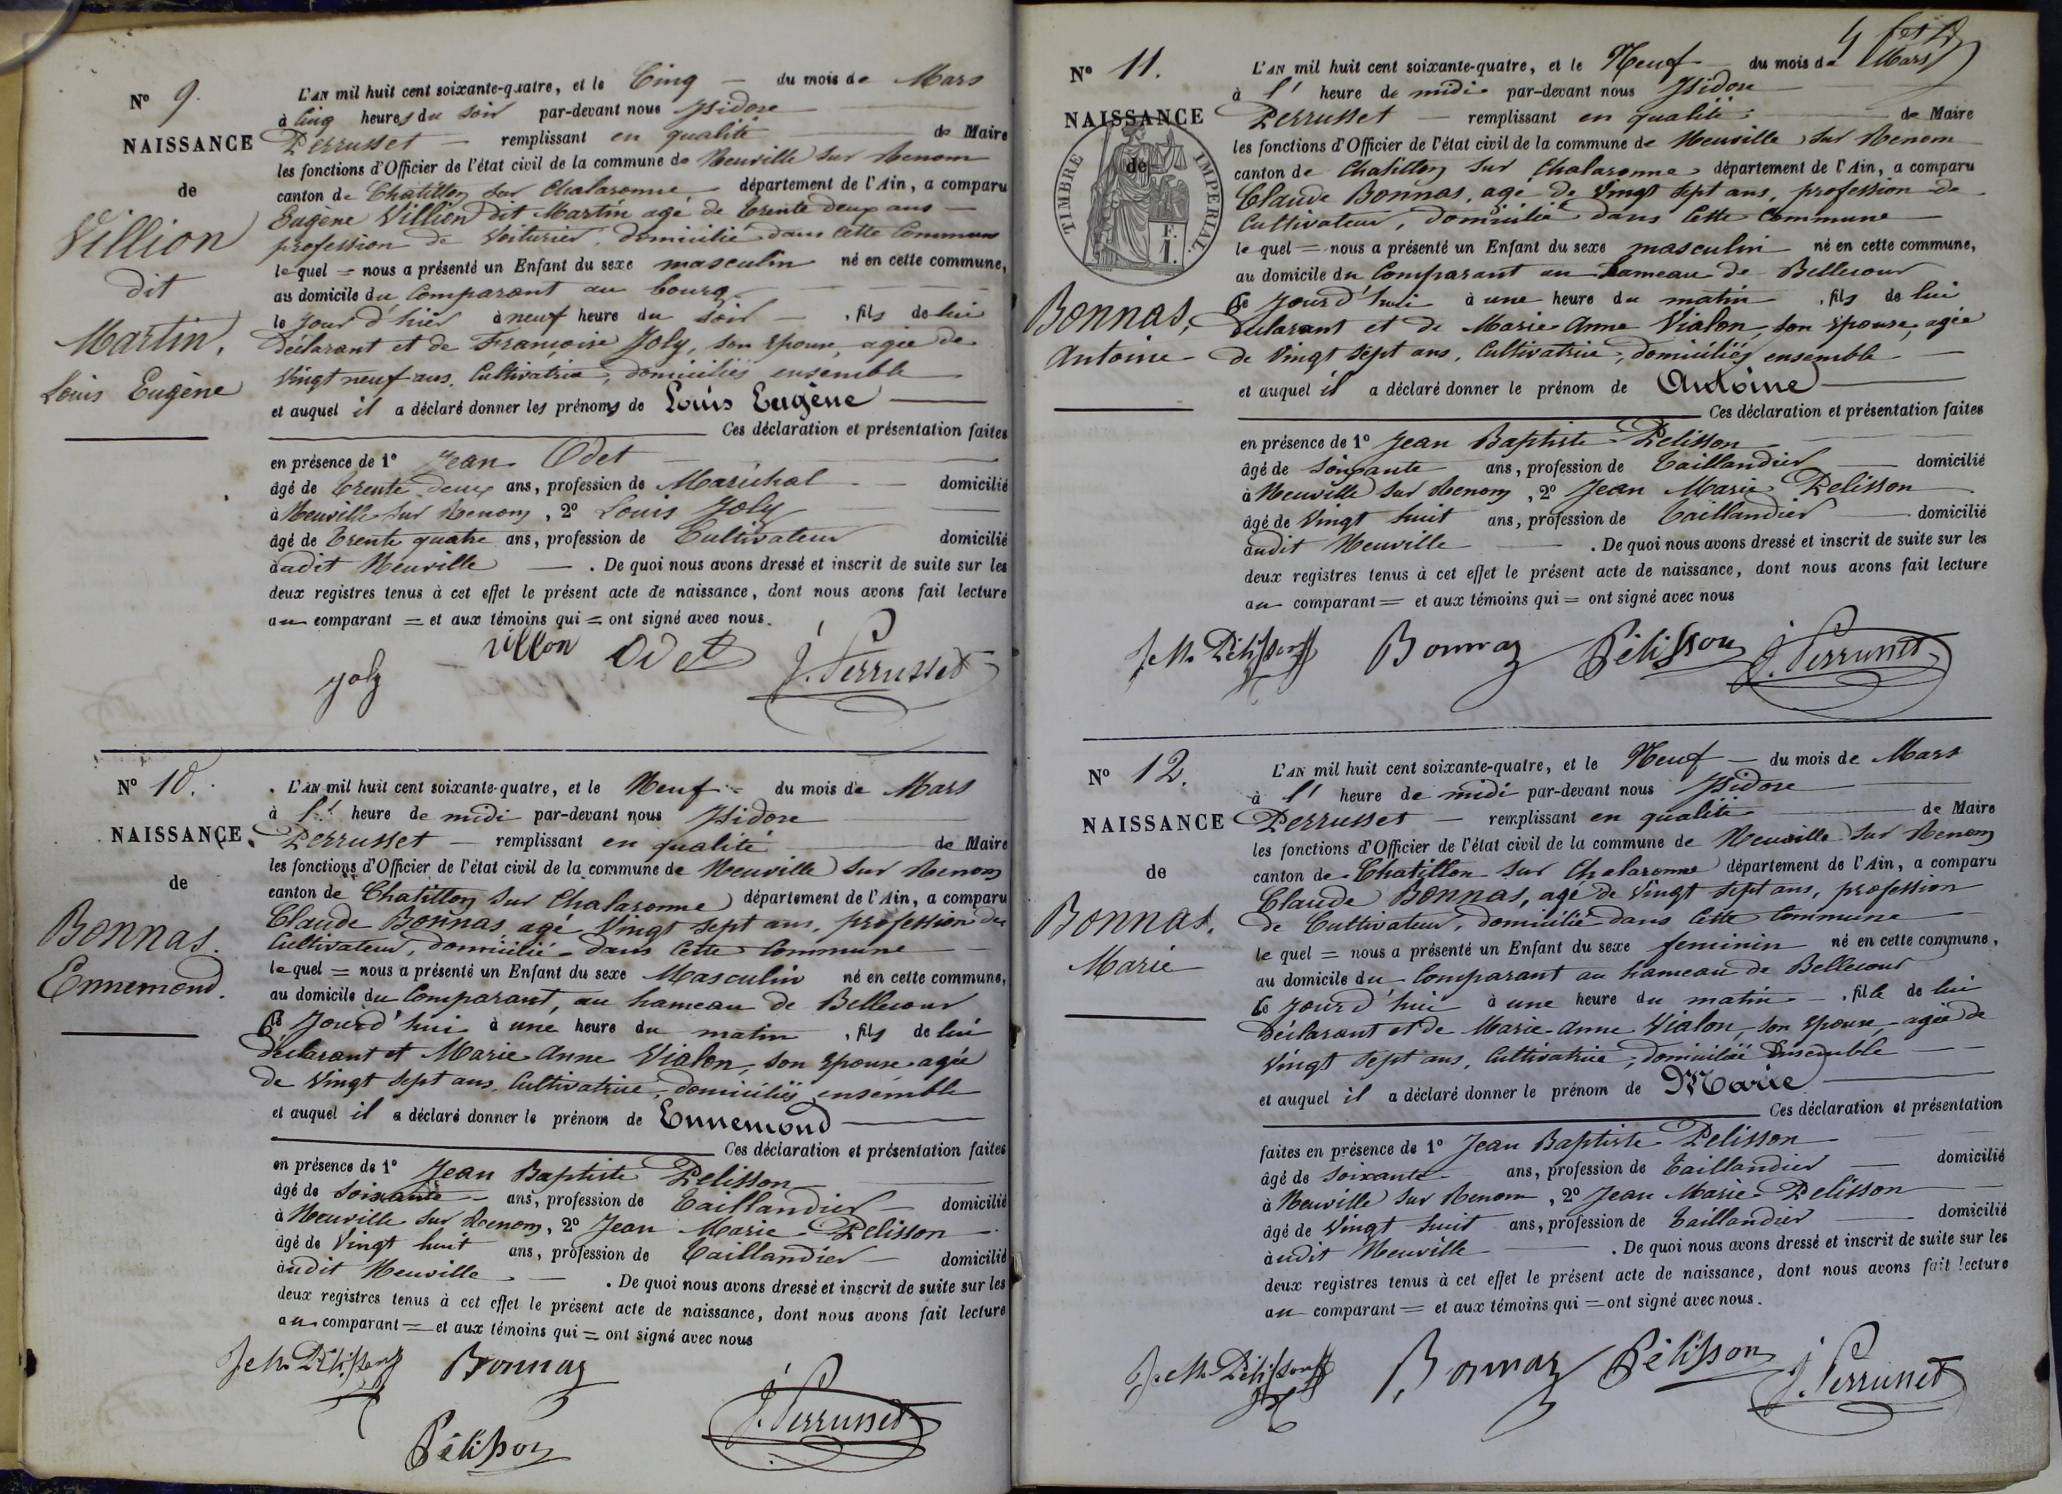 N° 9.
NAISSANCE
de
Villion
dit
Martin,
Louis Eugène
L'AN mil huit cent soixante-quatre, et le Cinq — du mois de Mars
à Cinq heures du soir par-devant nous Isidore
Perrusset — remplissant en qualité de Maire
les fonctions d'Officier de l'état civil de la commune de Neuville sur Renom
canton de Chatillon sur Chalaronne département de l'Ain, a comparu
Eugène Villion dit Martin agé de trente deux ans —
profession de Voiturier, domicilié dans cette Commune
lequel = nous a présenté un Enfant du sexe masculin né en cette commune,
au domicile du Comparant au bourg
le jour d'hier à neuf heure du soir — , fils de lui
déclarant et de Françoise Joly, son épouse, agée de
vingt neuf ans, Cultivatrice, domiciliés ensemble
et auquel il a déclaré donner les prénoms de Louis Eugène
Ces déclaration et présentation faites
en présence de 1° Jean Odet
âgé de trente deux ans, profession de Maréchal domicilié
à Neuville sur Renom, 2° Louis Joly
âgé de trente quatre ans, profession de Cultivateur domicilié
audit Neuville — . De quoi nous avons dressé et inscrit de suite sur les
deux registres tenus à cet effet le présent acte de naissance, dont nous avons fait lecture
au comparant = et aux témoins qui = ont signé avec nous.
joly villon Odet J. Perrusset
N° 10.
NAISSANCE
de
Bonnas.
Ennemond.
L'AN mil huit cent soixante-quatre, et le Neuf = du mois de Mars
à l' heure de midi par-devant nous Isidore
Perrusset — remplissant en qualité de Maire
les fonctions d'Officier de l'état civil de la commune de Neuville sur Renom
canton de Chatillon sur Chalaronne département de l'Ain, a comparu
Claude Bonnas, agé Vingt sept ans, profession de
Cultivateur, domicilié dans cette Commune
lequel = nous a présenté un Enfant du sexe Masculin né en cette commune,
au domicile du Comparant, au hameau de Bellecour
Ce jourd'hui à une heure du matin , fils de lui
déclarant et Marie Anne Vialon, son épouse agée
de Vingt sept ans, Cultivatrice, domiciliés ensemble
et auquel il a déclaré donner le prénom de Ennemond
Ces déclaration et présentation faites
en présence de 1° Jean Baptiste Pelisson
âgé de soixante — ans, profession de Taillandier domicilié
à Neuville sur Renom, 2° Jean Marie Pelisson
âgé de Vingt huit ans, profession de Taillandier domicilié
audit Neuville — . De quoi nous avons dressé et inscrit de suite sur les
deux registres tenus à cet effet le présent acte de naissance, dont nous avons fait lecture
au comparant = et aux témoins qui = ont signé avec nous
J. M. Pélisson Bonnaz
Pélisson J. Perrusset
N° 11.
NAISSANCE
de
TIMBRE IMPERIAL.
F.
1.
Bonnas,
Antoine
L'AN mil huit cent soixante-quatre, et le Neuf — du mois de Mars
à l' heure de midi par-devant nous Isidore
Perrusset — remplissant en qualité de Maire
les fonctions d'Officier de l'état civil de la commune de Neuville sur Renom
canton de Chatillon sur Chalaronne département de l'Ain, a comparu
Claude Bonnas, agé de Vingt sept ans, profession de
Cultivateur, domicilié dans cette Commune
lequel = nous a présenté un Enfant du sexe masculin né en cette commune,
au domicile du Comparant au hameau de Bellecour
Ce jourd'hui à une heure du matin , fils de lui
déclarant et de Marie Anne Vialon, son épouse, agée
de Vingt sept ans, Cultivatrice, domiciliés ensemble
et auquel il a déclaré donner le prénom de Antoine
Ces déclaration et présentation faites
en présence de 1° Jean Baptiste Pelisson
âgé de soixante ans, profession de Taillandier domicilié
à Neuville sur Renom, 2° Jean Marie Pelisson
âgé de Vingt huit ans, profession de Taillandier domicilié
audit Neuville — . De quoi nous avons dressé et inscrit de suite sur les
deux registres tenus à cet effet le présent acte de naissance, dont nous avons fait lecture
au comparant = et aux témoins qui = ont signé avec nous
J. M. Pélisson Bonnaz Pélisson J. Perrusset
N° 12.
NAISSANCE
de
Bonnas.
Marie
L'AN mil huit cent soixante-quatre, et le Neuf — du mois de Mars
à l' heure de midi par-devant nous Isidore
Perrusset — remplissant en qualité de Maire
les fonctions d'Officier de l'état civil de la commune de Neuville sur Renom
canton de Chatillon sur Chalaronne département de l'Ain, a comparu
Claude Bonnas, agé de Vingt sept ans, profession
de Cultivateur, domicilié dans cette Commune
lequel = nous a présenté un Enfant du sexe feminin né en cette commune,
au domicile du Comparant au hameau de Bellecour
Ce jourd'hui à une heure du matin — , fille de lui
déclarant et de Marie Anne Vialon, son épouse, agée de
Vingt sept ans, Cultivatrice, domicilié ensemble
et auquel il a déclaré donner le prénom de Marie
Ces déclaration et présentation
faites en présence de 1° Jean Baptiste Pelisson
âgé de soixante ans, profession de Taillandier domicilié
à Neuville sur Renom, 2° Jean Marie Pelisson
âgé de Vingt huit ans, profession de Taillandier domicilié
audit Neuville — . De quoi nous avons dressé et inscrit de suite sur les
deux registres tenus à cet effet le présent acte de naissance, dont nous avons fait lecture
au comparant = et aux témoins qui = ont signé avec nous.
J. M. Pélisson Bonnaz Pélisson J. Perrusset